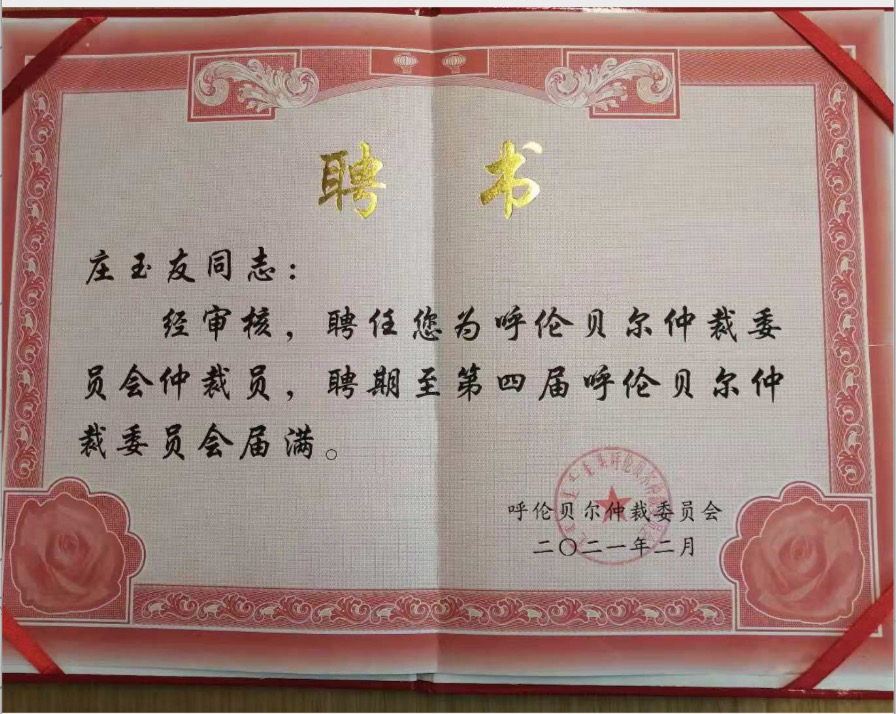 聘 书
庄玉友同志：
经审核，聘任您为呼伦贝尔仲裁委
员会仲裁员，聘期至第四届呼伦贝尔仲
裁委员会届满。
呼伦贝尔仲裁委员会
二〇二一年二月